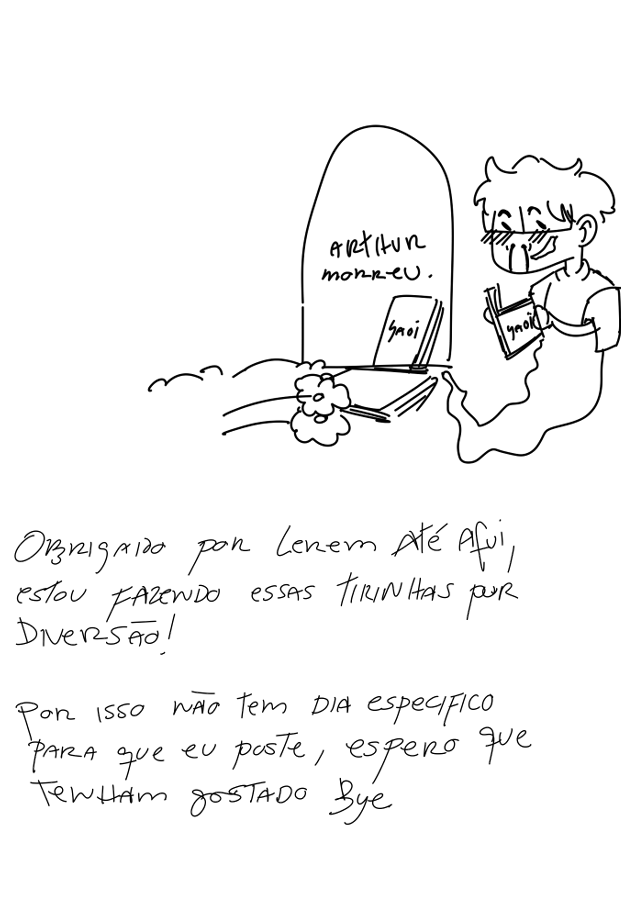 ARTHUR
MORREU.
YAOI
YAOI
OBRIGADO POR LEREM ATÉ AQUI,
ESTOU FAZENDO ESSAS TIRINHAS POR
DIVERSÃO!
POR ISSO NÃO TEM DIA ESPECIFICO
PARA QUE EU POSTE, ESPERO QUE
TENHAM GOSTADO Bye